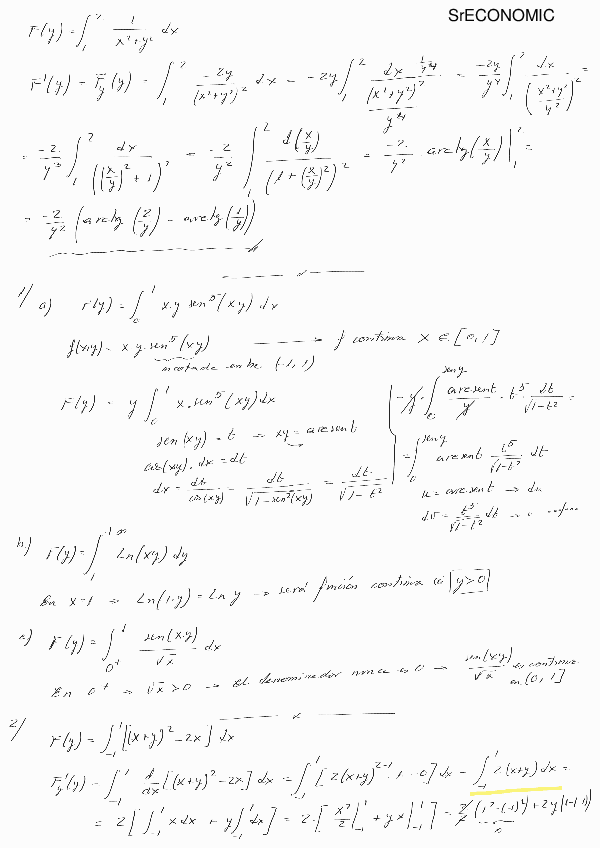 SrECONOMIC
F(y) = ∫₁² 1/(x²+y²) dx
F'(y) = F'y(y) = ∫₁² -2y/(x²+y²)² dx = -2y ∫₁² dx / ((x²+y²)²/y⁴) = -2y/y⁴ ∫₁² dx/((x²+y²)/y²)² =
= -2/y³ ∫₁² dx/((x/y)²+1)² = -2/y² ∫₁² d(x/y)/(1+(x/y)²)² = -2/y² arctg(x/y)|₁² =
= -2/y² (arctg(2/y) - arctg(1/y))
1/ a) F(y) = ∫₀¹ x·y sen⁵(xy) dx
f(x,y) = x y·sen⁵(xy) → f continua x ∈ [0,1]
acotada entre (-1,1)
F(y) = y ∫₀¹ x·sen⁵(xy) dx
sen(xy) = t → xy = arcsent
cos(xy)·dx = dt
dx = dt/cos(xy) = dt/√(1-sen²(xy)) = dt/√(1-t²)
= y·∫₀^seny arcsent/y · t⁵ dt/√(1-t²) =
= ∫₀^seny arcsent t⁵/√(1-t²) dt
u = arcsent → du
dv = t⁵/√(1-t²) dt →
b) F(y) = ∫₁^∞ Ln(xy) dy
En x=1 → Ln(1·y) = Ln y → será función continua si y>0
F(y) = ∫₀₊¹ sen(x·y)/√x dx
En 0⁺ → √x > 0 → el denominador nunca es 0 → sen(xy)/√x es continua en (0,1]
2/ F(y) = ∫₋₁¹ [(x+y)² - 2x] dx
F'y(y) = ∫₋₁¹ d/dx [(x+y)² - 2x] dx = ∫₋₁¹ [2(x+y)²⁻¹·1 - 0] dx = ∫₋₁¹ 2(x+y) dx =
= 2[∫₋₁¹ x dx + y∫₋₁¹ dx] = 2·[x²/2|₋₁¹ + yx|₋₁¹] =